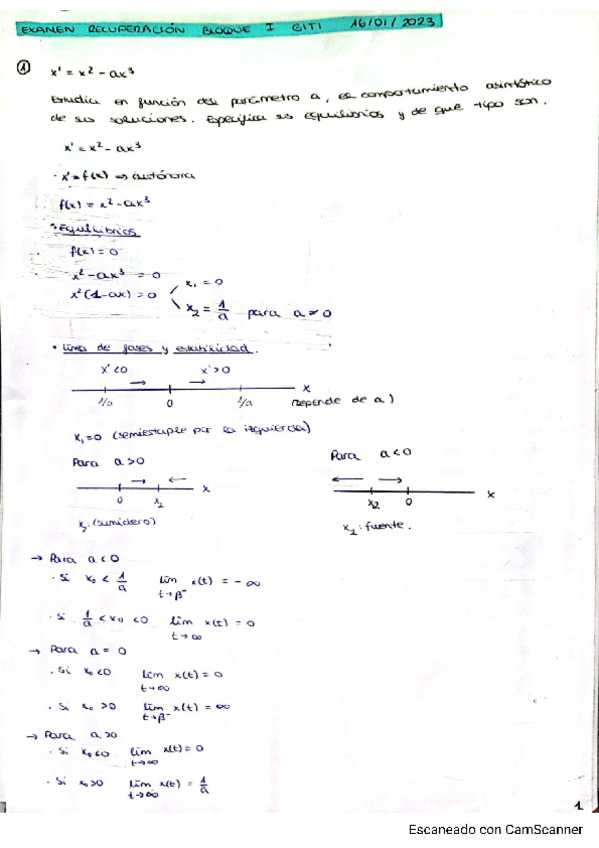 EXAMEN RECUPERACIÓN BLOQUE I GITI 16/01/2023
① x' = x² - ax³
Estudia en función del parámetro a, el comportamiento asintótico
de sus soluciones. Especifica sus equilibrios y de qué tipo son.
x' = x² - ax³
· x' = f(x) ⇒ autónoma
f(x) = x² - ax³
· Equilibrios
f(x) = 0
x² - ax³ = 0
x²(1 - ax) = 0
x₁ = 0
x₂ = 1/a para a ≠ 0
· Línea de fases y estabilidad.
x' < 0 x' > 0
1/a 0 1/a x (Depende de a)
x₁ = 0 (semiestable por la izquierda)
Para a > 0 Para a < 0
0 x₂ x x₂ 0 x
x₂: (sumidero) x₂: fuente.
→ Para a < 0
· Si x₀ < 1/a lim x(t) = -∞
t→β⁻
· Si 1/a < x₀ < 0 lim x(t) = 0
t→∞
→ Para a = 0
· Si x₀ < 0 lim x(t) = 0
t→∞
· Si x₀ > 0 lim x(t) = ∞
t→β⁻
→ Para a > 0
· Si x₀ < 0 lim x(t) = 0
t→∞
· Si x₀ > 0 lim x(t) = 1/a
t→∞
1
Escaneado con CamScanner